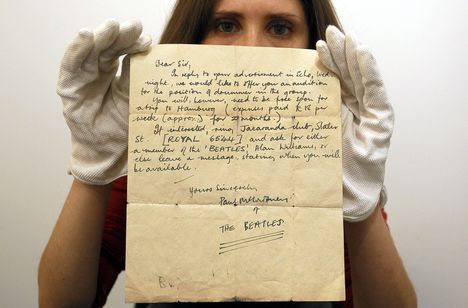 Dear Sir,
In reply to your advertisement in Echo, Wed.
night, we would like to offer you an audition
for the position of drummer in the group.
You will, however, need to be free soon for
a trip to Hamburg (expenses paid £18 per
week (approx.) for 2 months.)
If interested, ring Jacaranda club, Slater
St. [ROYAL 6544] and ask for either
a member of the 'BEATLES', Alan Williams, or
else leave a message, stating when you will
be available.
Yours sincerely,
Paul McCartney
of
THE BEATLES.